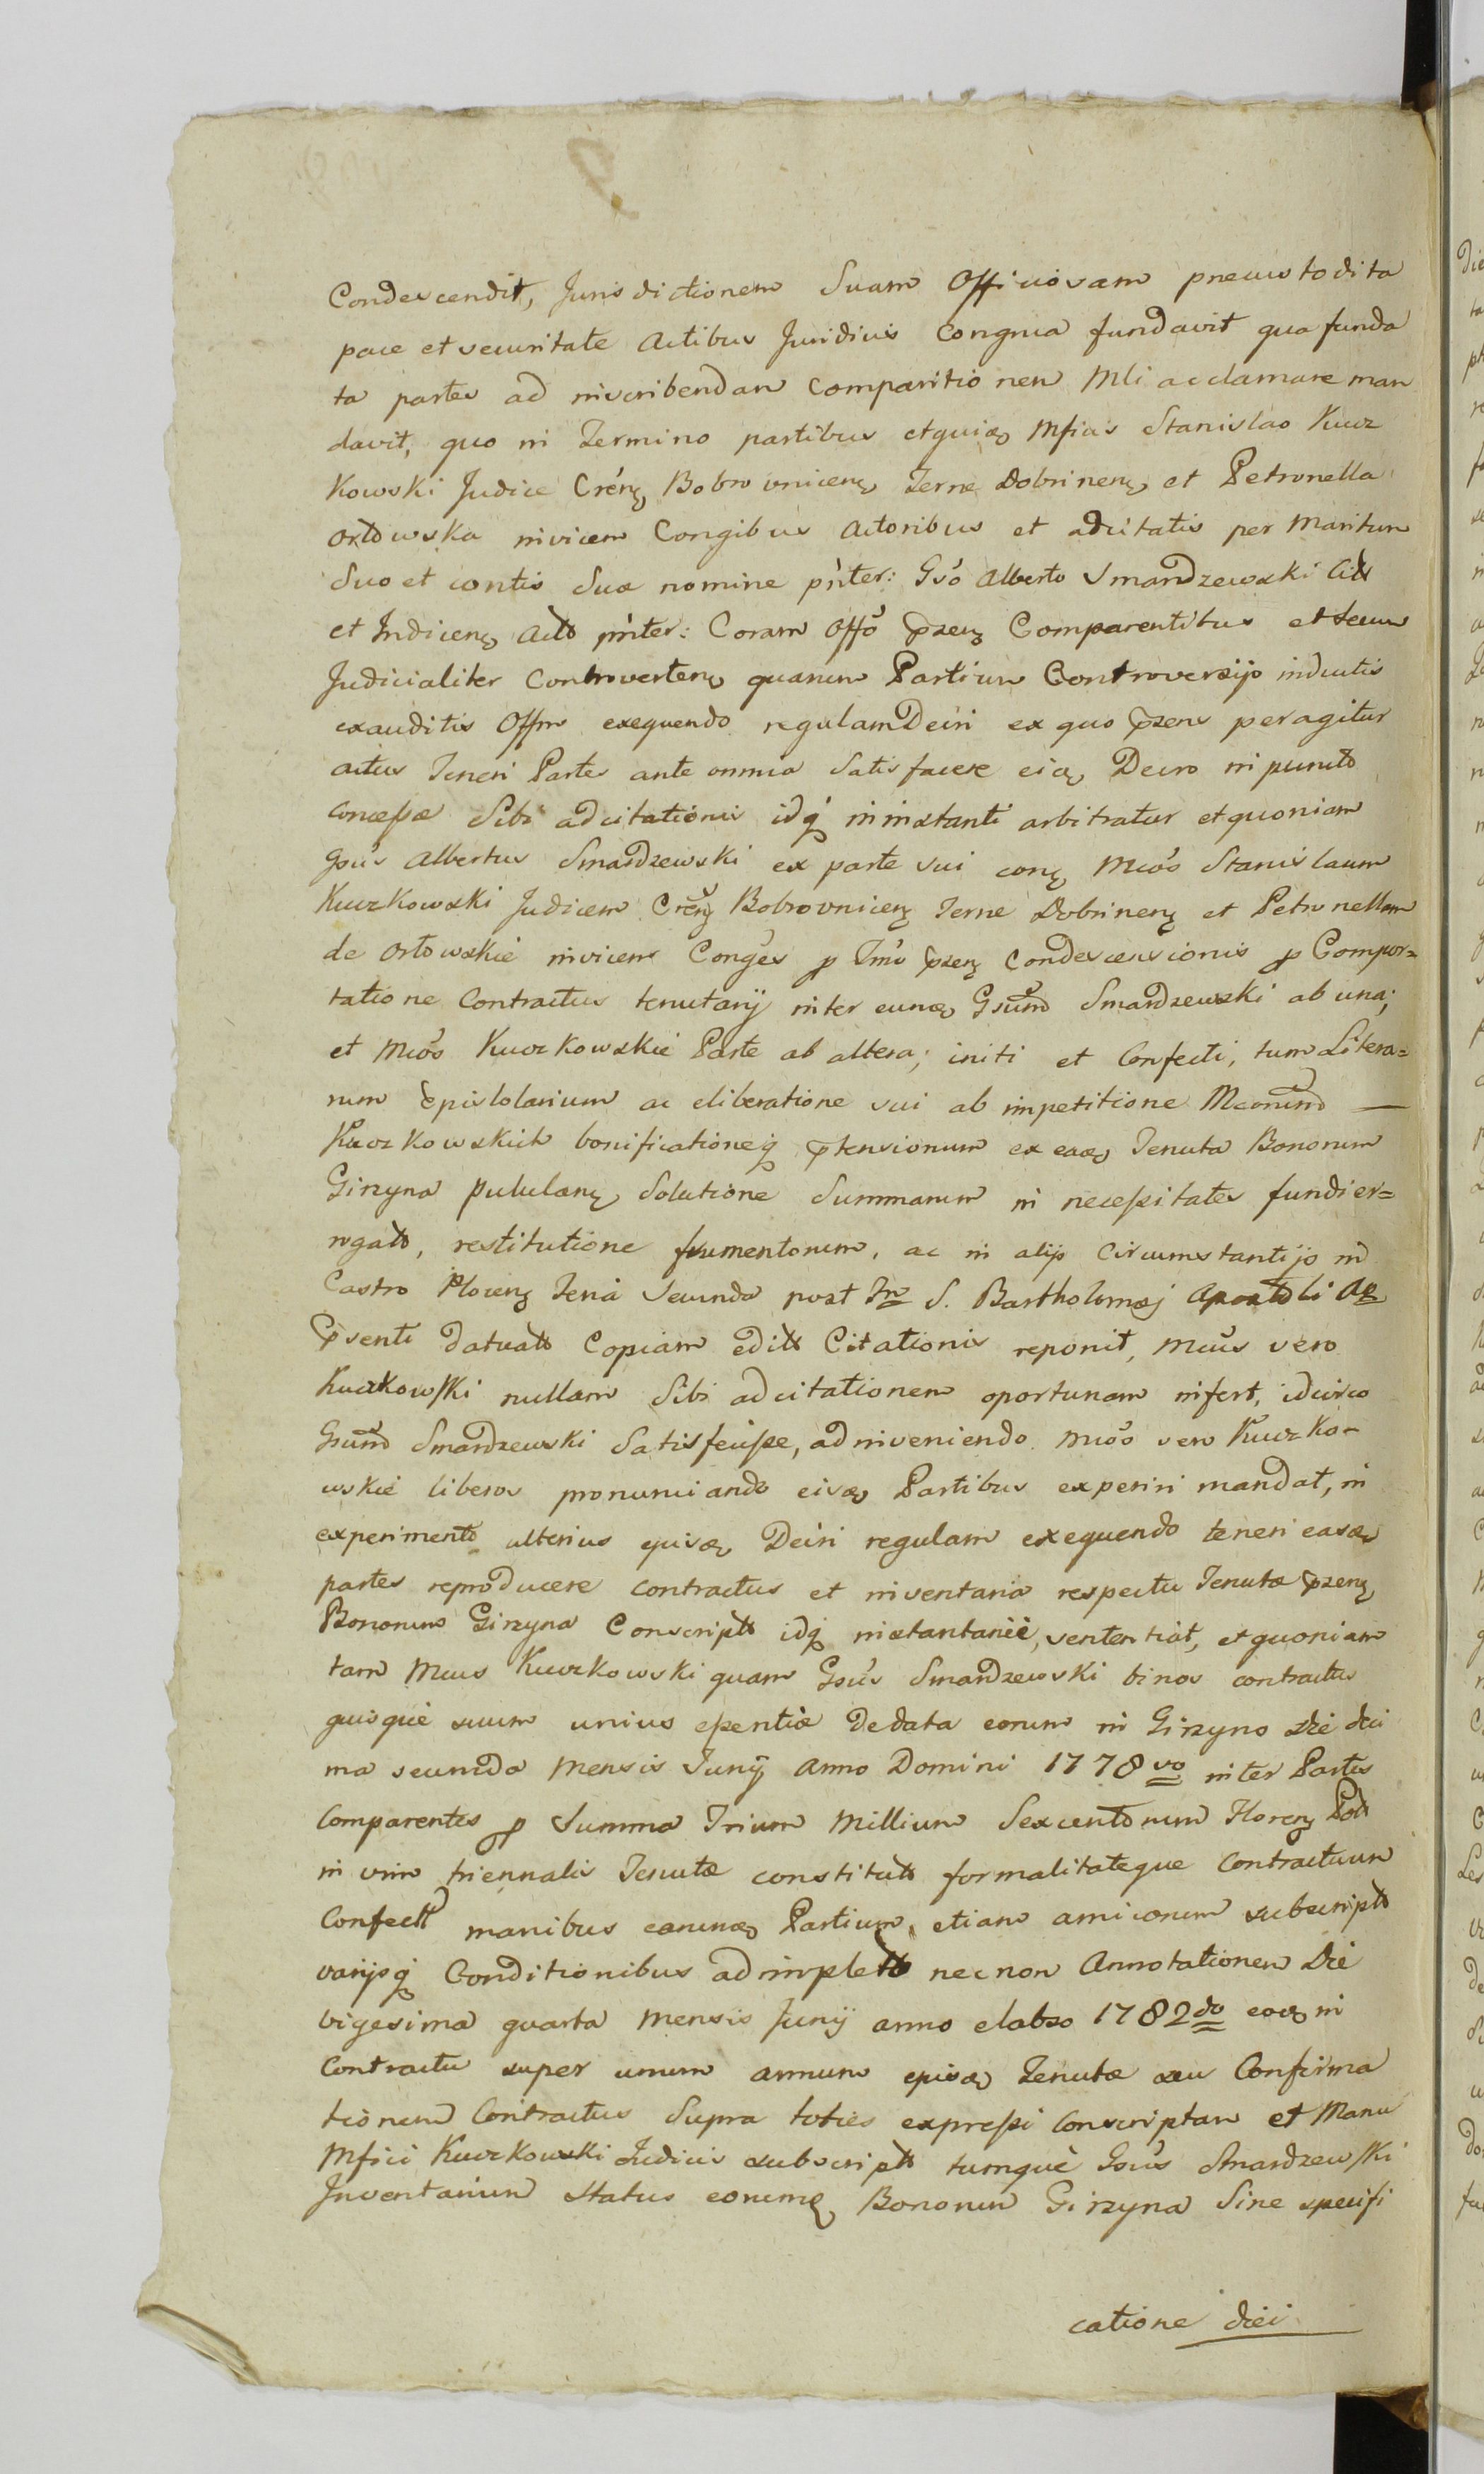 Condescendit, Jurisdictionem Suam Officiosam praecustodita
pace et securitate Actibus Juridicis Congrua fundavit qua funda
ta partes ad inscribendam Comparitionem Mli acclamare man
davit, quo in Termino partibus etquidꝫ Mficis Stanislao Kucz
kowski Judice Crénꝫ Bobrovnicenꝫ Terrae Dobrinenꝫ et Petronella
Orłowska invicem Congibus Actoribus et adcitatis per Maritum
Suo et contis Suae nomine pńter: Gsó Alberto Smardzewski Citt
et Indicenꝫ Actt pńter: Coram Offó pzenꝫ Comparentibus et secum
Judicialiter Controvertenꝫ quarum Partium Controversijs inductis
exauditis Offm exequendo regulam Decri ex quo pzens peragitur
actus Teneri Partes ante omnia Satisfacere eidꝫ Decro in puncto
concessae Sibi adcitationis idqꝫ ininstanti arbitratur etquoniam
Gsús Albertus Smardzewski ex parte sui conꝫ Mcós Stanislaum
Kuczkowski Judicem Crénꝫ Bobrovnicenꝫ Terrae Dobrinenꝫ et Petronellam
de Orłowskie invicem Conges p Tmó pzenꝫ Condescensionis p Compor=
tatione Contractus tenutarij inter eundꝫ Gsum Smardzewski ab una;
et Mcós Kuczkowskie Parte ab altera; initi et Confecti, tum Litera=
rum Epistolarium ac eliberatione sui ab impetitione Mcorum —
Kuczkowskich bonificationeqꝫ ptensionum ex eadꝫ Tenuta Bonorum
Girzyna pululanꝫ Solutione Summarum in necessitates fundi er=
rogatt, restitutione frumentorum, ac in alijs Circumstantijs in
Castro Plocenꝫ Feria Secunda post Fm S. Bartholomaej Apostoli A
psenti datuatt Copiam editt Citationis reponit, Mcús vero
Kuczkowski nullam Sibi adcitationem oportunam infert, idcirco
Gsum Smardzewski Satisfecisse, adinveniendo Mcós vero Kuczko-
wskie liberos pronunciando eisdꝫ Partibus experiri mandat, in
experimento ulterius ejusdꝫ Decri regulam exequendo teneri easdꝫ
partes reproducere contractus et inventaria respectu Tenutae pzenꝫ
Bonorum Girzyna Conscriptt idqꝫ instantanèè, sententiat, etquoniam
tam Mcus Kuczkowski quam Gsús Smardzewski binos contractus
quisquè suum unius essentiae Dedata eorum in Girzyno Die deci
ma secunda Mensis Junij Anno Domini 1778vo inter Partes
Comparentes p Summa Trium Millium Sexcentorum Florenꝫ Poll
in vim triennalis Tenutae constitutt formalitateque Contractuum
Confectt manibus earundꝫ Partium, etiam amicorum subscriptt
varijsqꝫ Conditionibus adimplett necnon Annotationem Die
vigesima quarta Mensis Junij anno elabso 1782do eodꝫ in
Contractu super unum annum ejusdꝫ Tenutae seu Confirma
tionem Contractus Supra toties expressi Conscriptam et Manu
Mfici Kuczkowski Judicis subscriptt tumquè Gsús Smardzewski
Inventarium Status eorumdꝫ Bonorum Girzyna Sine specifi
catione diei